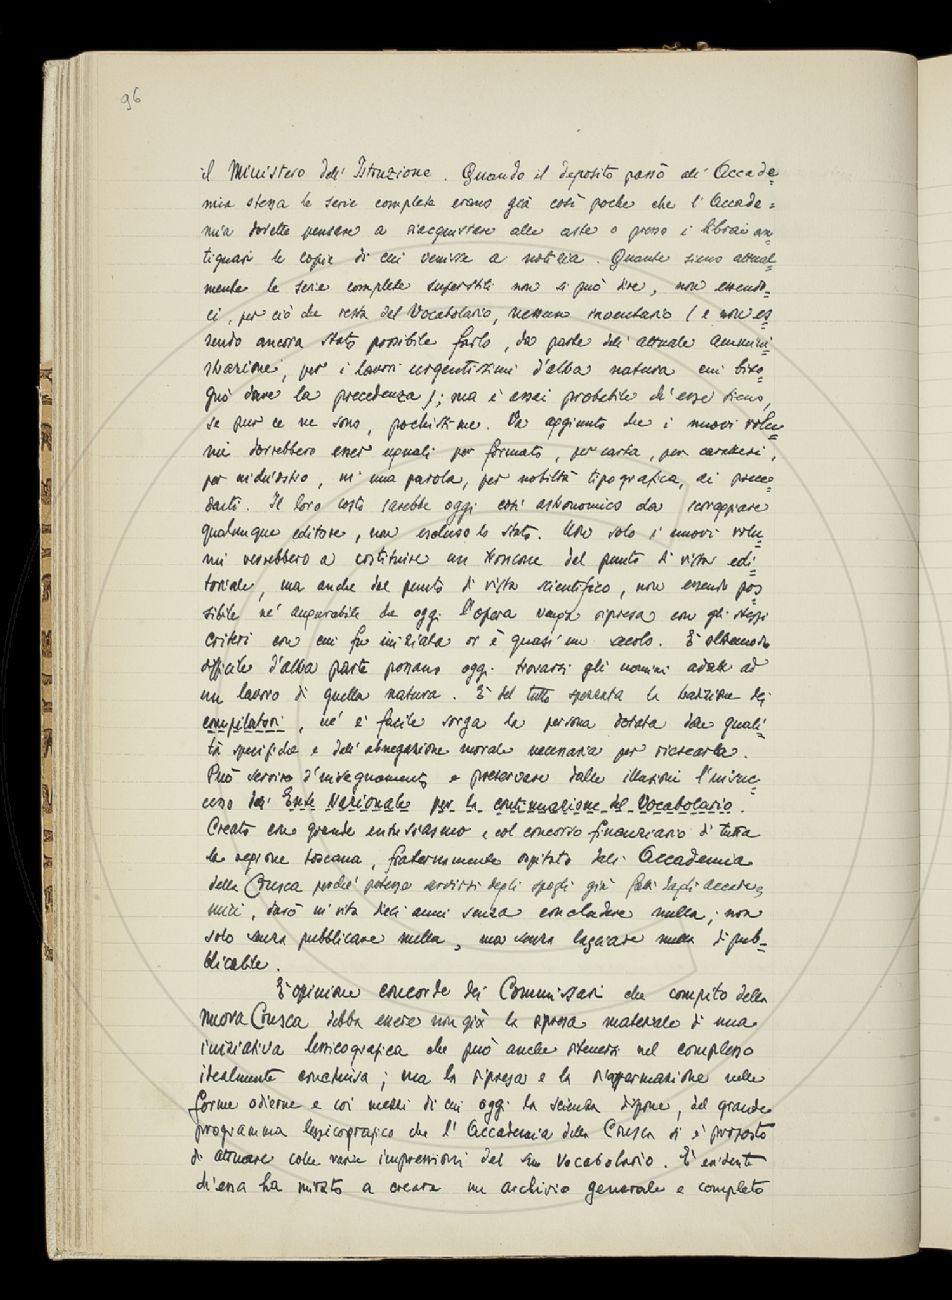 96
il Ministero dell'Istruzione. Quando il deposito passò all'Accade=
mia stessa le serie complete erano già così poche che l'Accade=
mia dovette pensare a riacquistare alle aste o presso i librai an=
tiquari le copie di cui venisse a notizia. Quante sieno attual=
mente le serie complete superstiti non si può dire, non essendo=
ci, per ciò che resta del Vocabolario, nessuno inventario (e non es=
sendo ancora stato possibile farlo, da parte dell'attuale ammini=
strazione, per i lavori urgentissimi d'altra natura cui biso=
gnò dare la precedenza); ma è assai probabile ch'esse sieno,
se pur ce ne sono, pochissime. Va aggiunto che i nuovi volu=
mi dovrebbero esser uguali per formato, per carta, per caratteri,
per inchiostro, in una parola, per nobiltà tipografica, ai prece=
denti. Il loro costo sarebbe oggi così astronomico da scoraggiare
qualunque editore, non escluso lo Stato. Non solo i nuovi volu=
mi verrebbero a costituire un troncone dal punto di vista edi=
toriale, ma anche dal punto di vista scientifico, non essendo pos=
sibile né augurabile che oggi l'opera venga ripresa con gli stessi
criteri con cui fu iniziata or è quasi un secolo. È oltremodo
difficile d'altra parte possano oggi trovarsi gli uomini adatti ad
un lavoro di quella natura. È del tutto spenta la tradizione dei
compilatori, né è facile sorga la persona dotata delle quali=
tà specifiche e dell'abnegazione morale necessaria per ricrearla.
Può servire d'insegnamento e preservare dalle illusioni l'insuc=
cesso dell'Ente Nazionale per la continuazione del Vocabolario.
Creato con grande entusiasmo e col concorso finanziario di tutta
la regione toscana, fraternamente ospitato dall'Accademia
della Crusca perché potesse servirsi degli spogli già fatti dagli accade=
mici, durò in vita dieci anni senza concludere nulla; non
solo senza pubblicare nulla, ma senza lasciare nulla di pub=
blicabile.
È opinione concorde dei Commissari che compito della
nuova Crusca debba essere non già la ripresa materiale di una
iniziativa lessicografica che può anche ritenersi nel complesso
idealmente conclusa; ma la ripresa e la riaffermazione nelle
forme odierne e coi mezzi di cui oggi la scienza dispone, del grande
programma lessicografico che l'Accademia della Crusca si è proposto
di attuare colle varie impressioni del suo Vocabolario. È evidente
ch'essa ha mirato a creare un archivio generale e completo